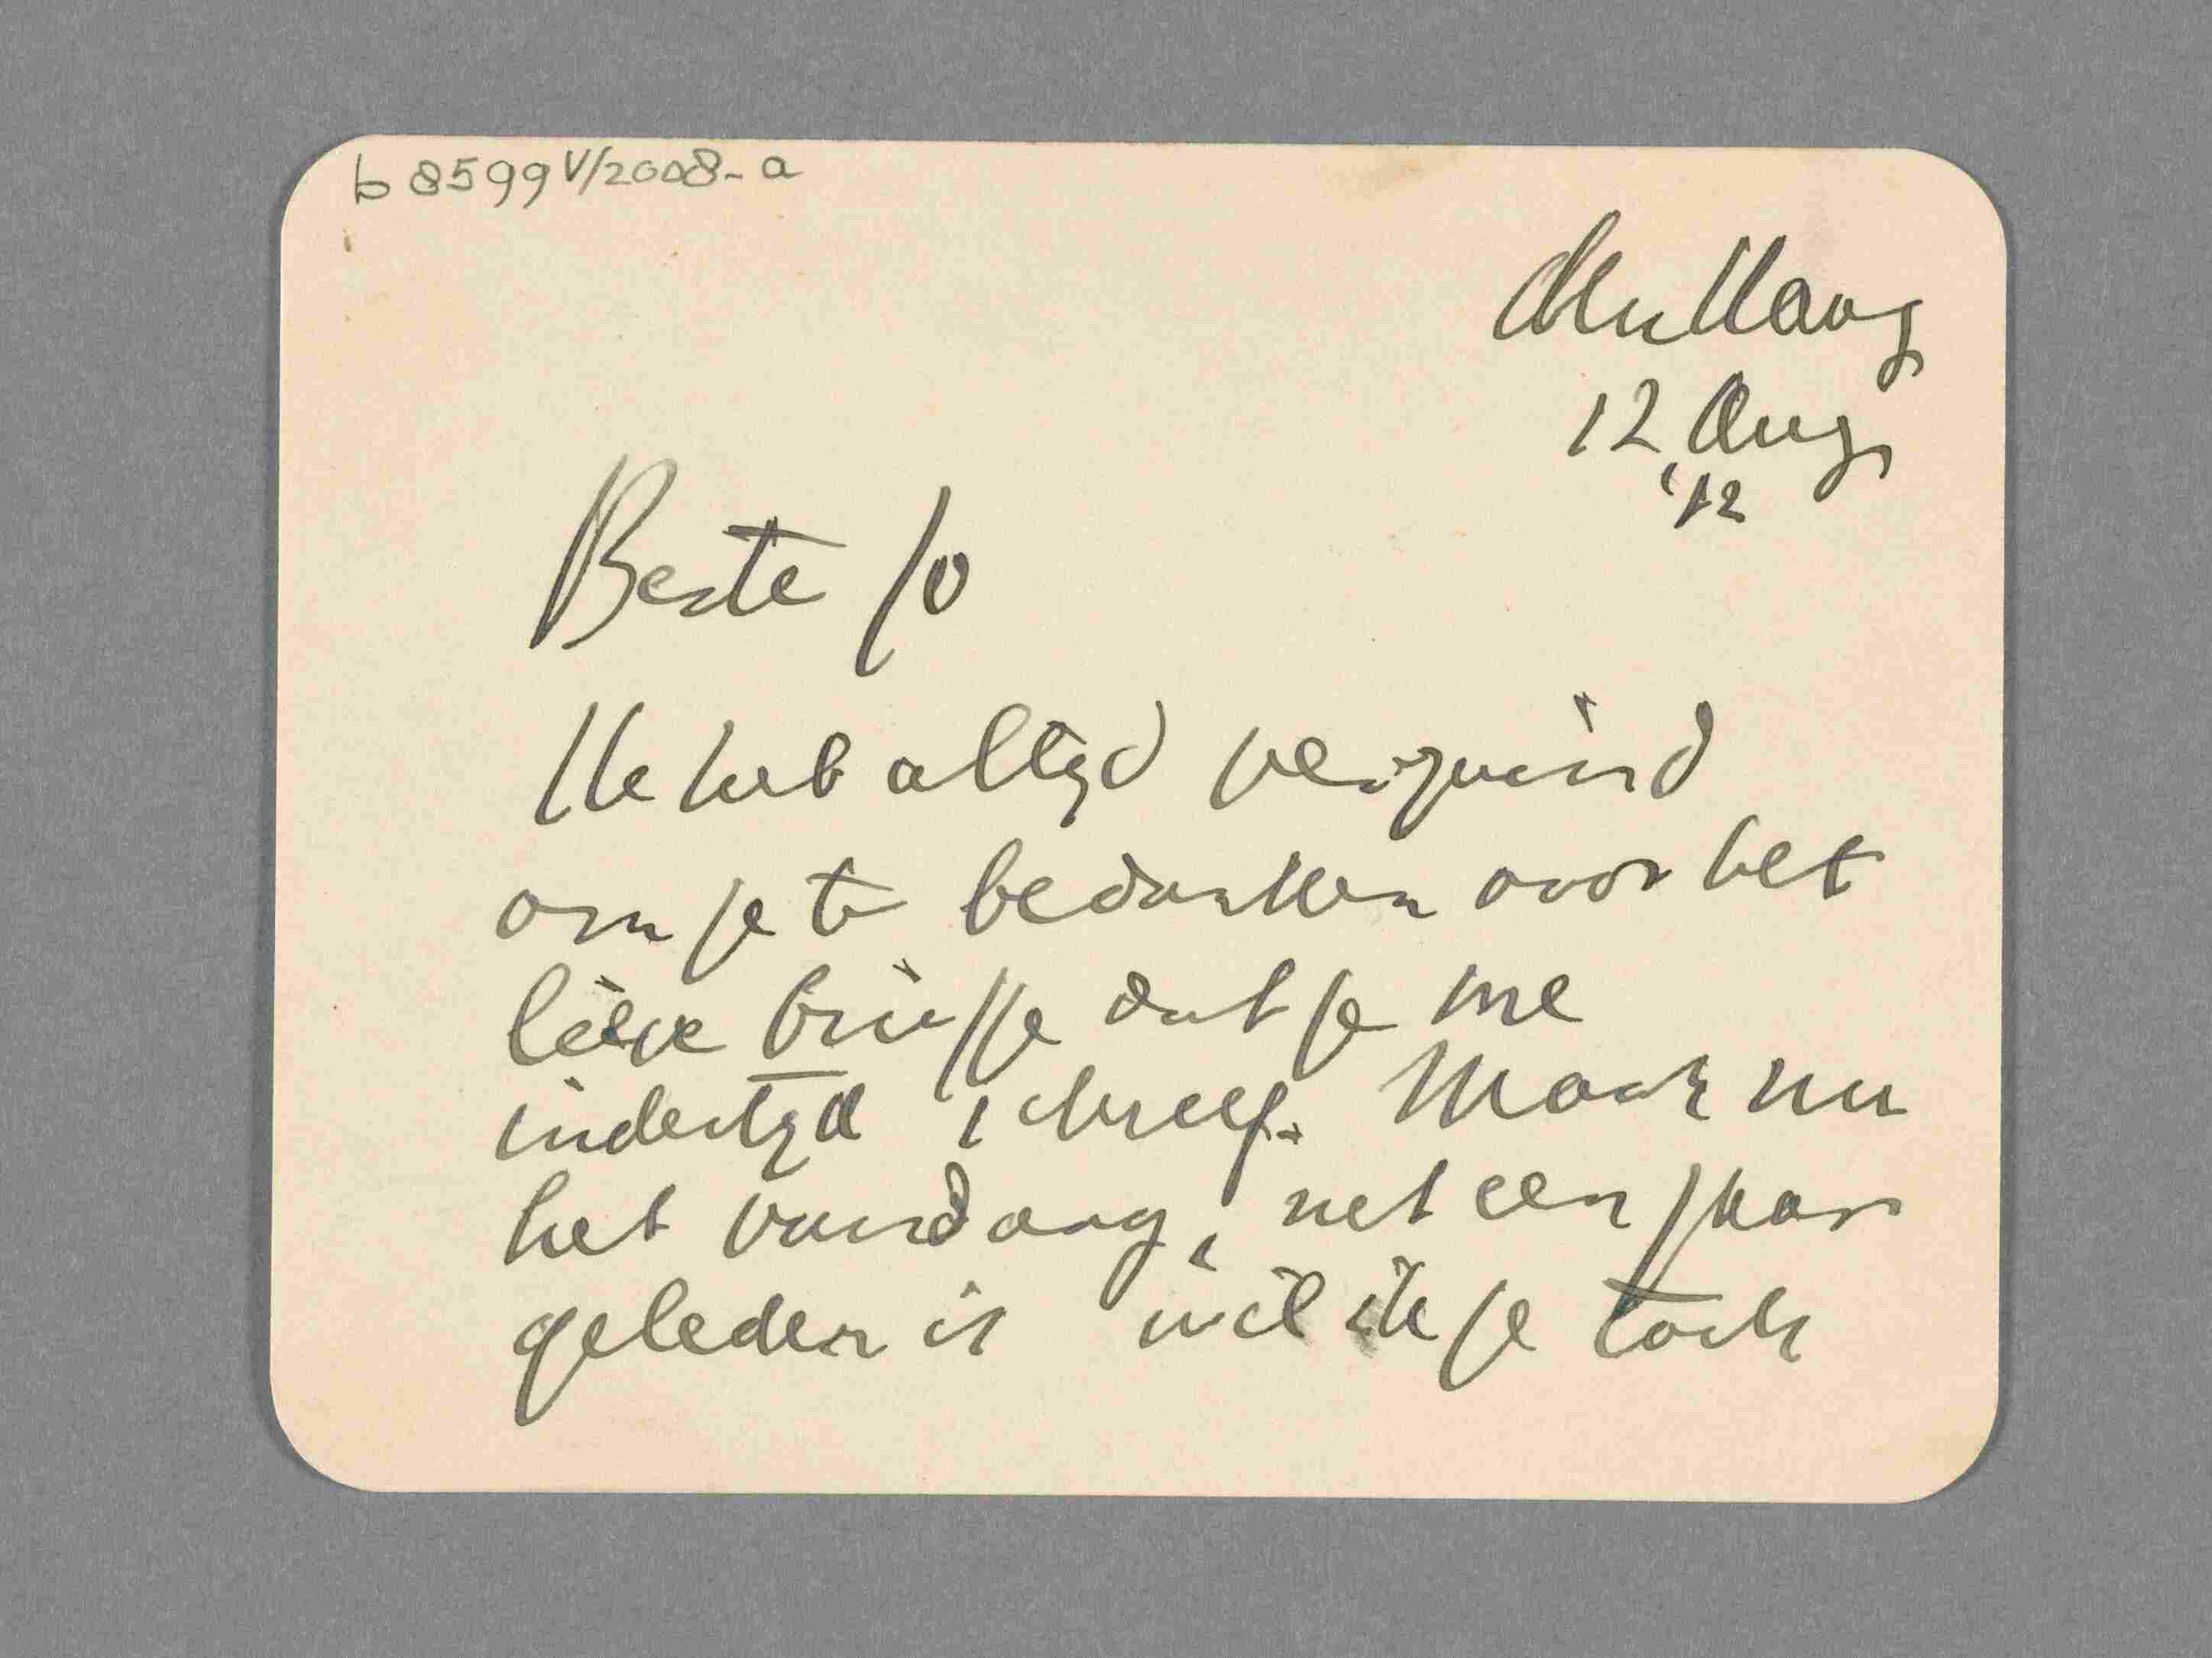 b 8599 V/2008-a
den Haag
12 Aug
'12
Beste Jo
Ik heb altyd verzuimd
om je te bedanken voor het
lieve briefje dat je me
indertyd schreef. Maar nu
het vandaag, net een jaar
geleden is wil ik je toch